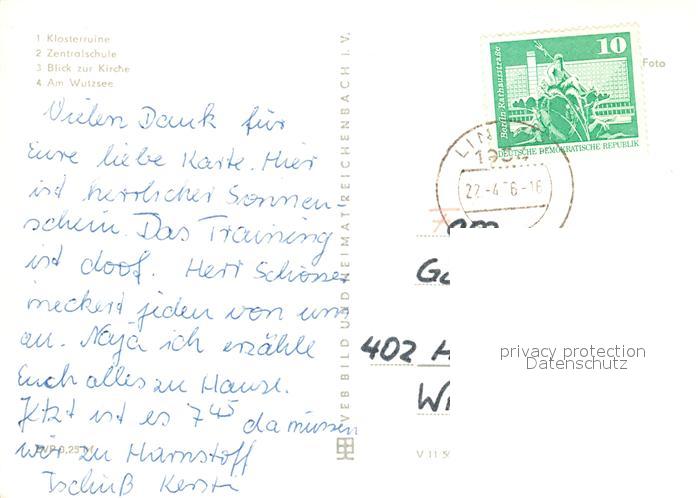 1 Klosterruine
2 Zentralschule
3 Blick zur Kirche
4 Am Wutzsee
Vielen Dank für
Eure liebe Karte. Hier
ist herrlicher Sonnen-
schein. Das Training
ist doof. Herr Schösser
meckert jeden von uns
an. Naja ich erzähle
Euch alles zu Hause.
Jtzt ist es 7 45 da müssen
wir zu Harnstoff
Tschüß Kersti
EVP 0,25 M
VEB BILD UND HEIMAT REICHENBACH I. V.
Foto
10
Berlin Rathausstraße
DEUTSCHE DEMOKRATISCHE REPUBLIK
LIN
22-4
-16
Fam
402 H
W
V 11 5
privacy protection
Datenschutz